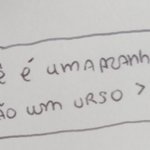 ê é uma aranh
ão um urso >